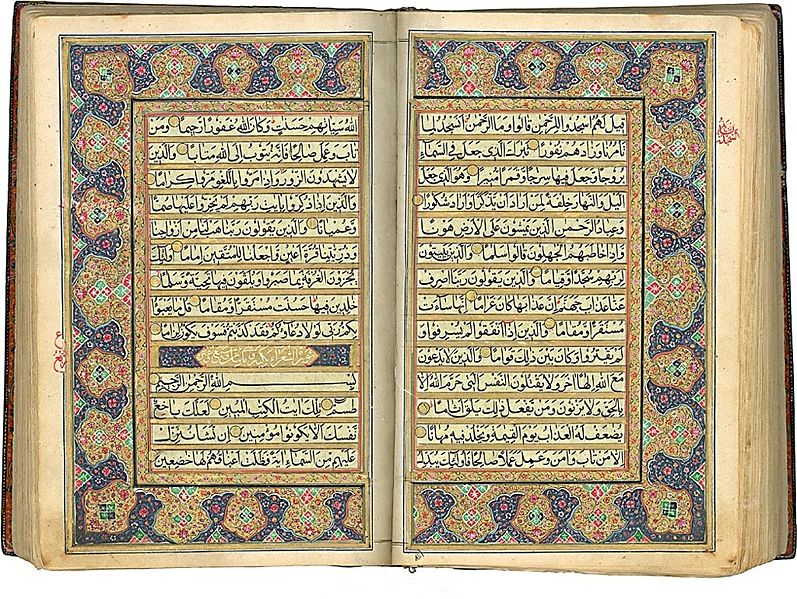 قيل لهم اسجدوا للرحمن قالوا وما الرحمن انسجد لما
تأمرنا وزادهم نفورا تبرك الذي جعل في السماء
بروجا وجعل فيها سرجا وقمرا منيرا وهو الذي جعل
اليل والنهار خلفة لمن اراد ان يذكر او اراد شكورا
وعباد الرحمن الذين يمشون على الارض هونا
واذا خاطبهم الجهلون قالوا سلاما والذين يبيتون
لربهم سجدا وقياما والذين يقولون ربنا اصرف
عنا عذاب جهنم ان عذابها كان غراما انها ساءت
مستقرا ومقاما والذين اذا انفقوا لم يسرفوا و
لم يقتروا وكان بين ذلك قواما والذين لا يدعون
مع الله الها اخر ولا يقتلون النفس التي حرم الله الا
بالحق ولا يزنون ومن يفعل ذلك يلق اثاما
يضعف له العذاب يوم القيمة ويخلد فيه مهانا
الا من تاب وامن وعمل عملا صالحا فاولئك يبدل
الله سيئاتهم حسنت وكان الله غفورا رحيما ومن
تاب وعمل صالحا فانه يتوب الى الله متابا والذين
لا يشهدون الزور واذا مروا باللغو مروا كراما
والذين اذا ذكروا بايت ربهم لم يخروا عليها صما
وعميانا والذين يقولون ربنا هب لنا من ازواجنا
وذريتنا قرة اعين واجعلنا للمتقين اماما اولئك
يجزون الغرفة بما صبروا ويلقون فيها تحية وسلما
خلدين فيها حسنت مستقرا ومقاما قل ما يعبؤا
بكم ربي لولا دعاؤكم فقد كذبتم فسوف يكون لزاما
بسم الله الرحمن الرحيم
طسم تلك ايت الكتب المبين لعلك باخع
نفسك الا يكونوا مؤمنين ان نشا ننزل
عليهم من السماء اية فظلت اعناقهم لها خضعين